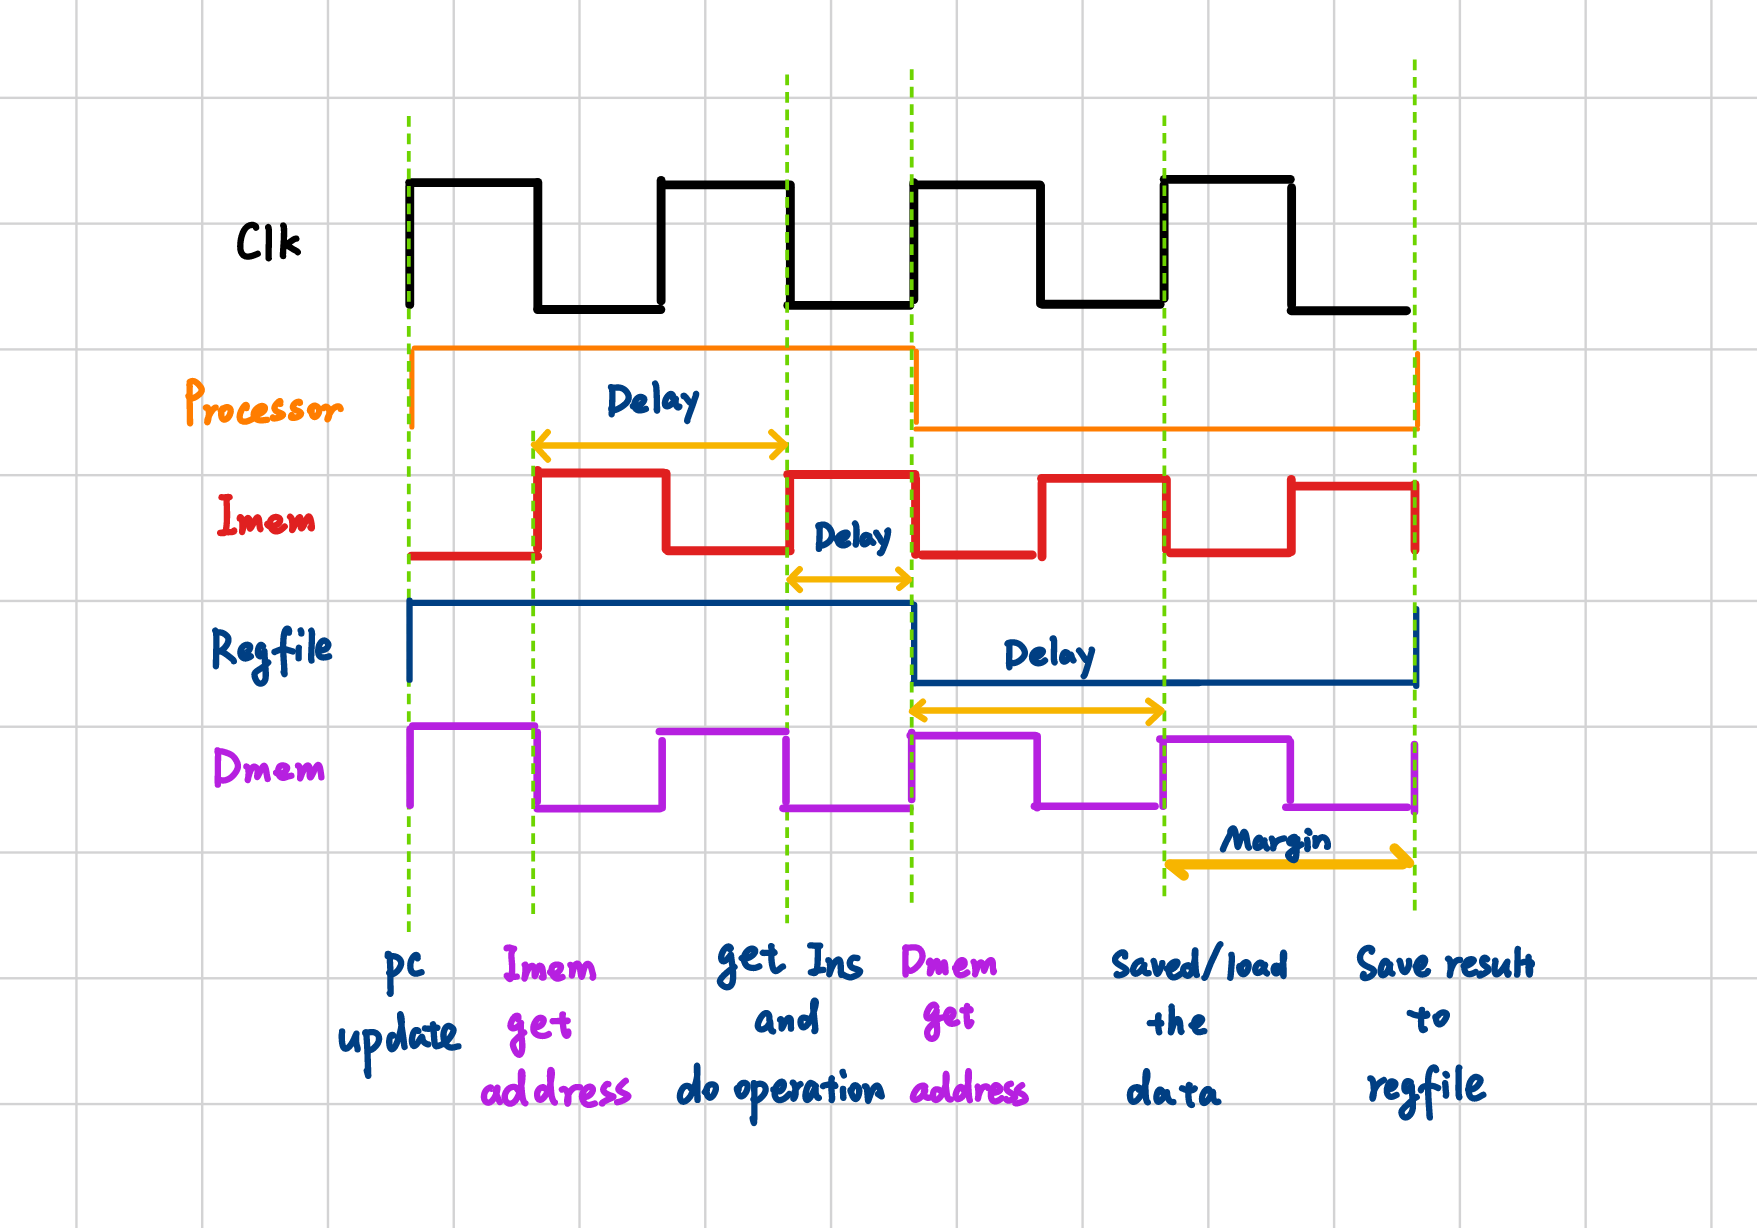 Clk
Processor
Delay
Imem
Delay
Regfile
Delay
Dmem
Margin
pc
update
Imem
get
address
get Ins
and
do operation
Dmem
get
address
Saved/load
the
data
Save result
to
regfile